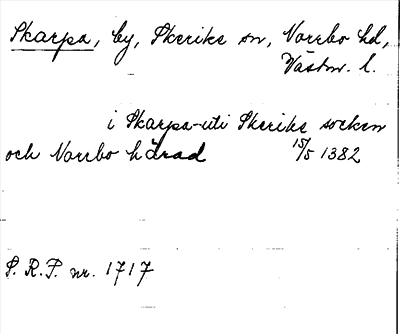 Skarpa, by, Skerike sn, Norrbo hd,
Västm. l.
i Skarpa uti Skerike socken
och Norrbo härad 15/5 1382
S. R. P. nr. 1717